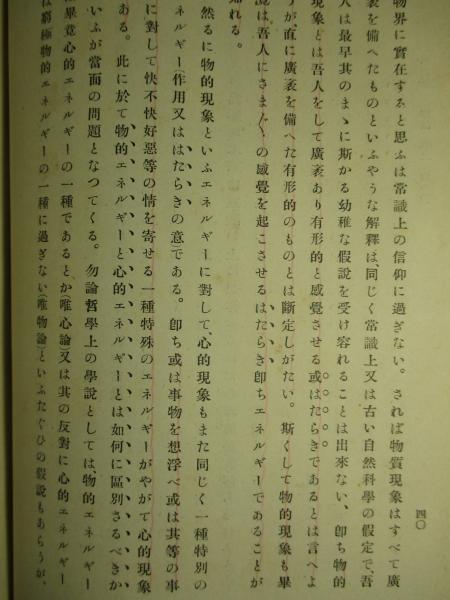 四〇
物界に實在すると思ふは常識上の信仰に過ぎない。されば物質現象はすべて廣
袤を備へたものといふやうな解釋は、同じく常識上又は古い自然科學の假定で、吾
人は最早其のまゝに斯かる幼稚な假說を受け容れることは出來ない、卽ち物的
現象とは吾人をして廣袤あり有形的と感覺させる或はたらきであるとは言へよ
うが直に廣袤を備へた有形的のものとは斷定しがたい。斯くして物的現象も畢
境は吾人にさま〴〵の感覺を起こさせるはたらき卽ちエネルギーであることが
知れる。
然るに物的現象といふエネルギーに對して、心的現象もまた同じく一種特別の
エネルギー(作用又ははたらきの意)である。卽ち或は事物を想浮べ或は其等の事
に對して快不快好惡等の情を寄せる一種特殊のエネルギーがやがて心的現象
ある。此に於て物的エネルギーと心的エネルギーとは如何に區別さるべきか
いふが當面の問題となつてくる。勿論哲學上の學說としては物的エネルギー
畢竟心的エネルギーの一種であるとか唯心論又は其の反對に心的エネルギー
窮極物的エネルギーの一種に過ぎない(唯物論)といふたぐひの假說もあらうが、